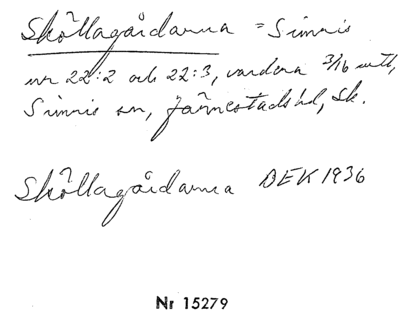 Sköllagårdarna = Simris
nr 22:2 och 22:3, vardera 3/16 mtl,
Simris sn, Järrestads hd, Sk.
Sköllagårdarna BEK 1936
Nr 15279